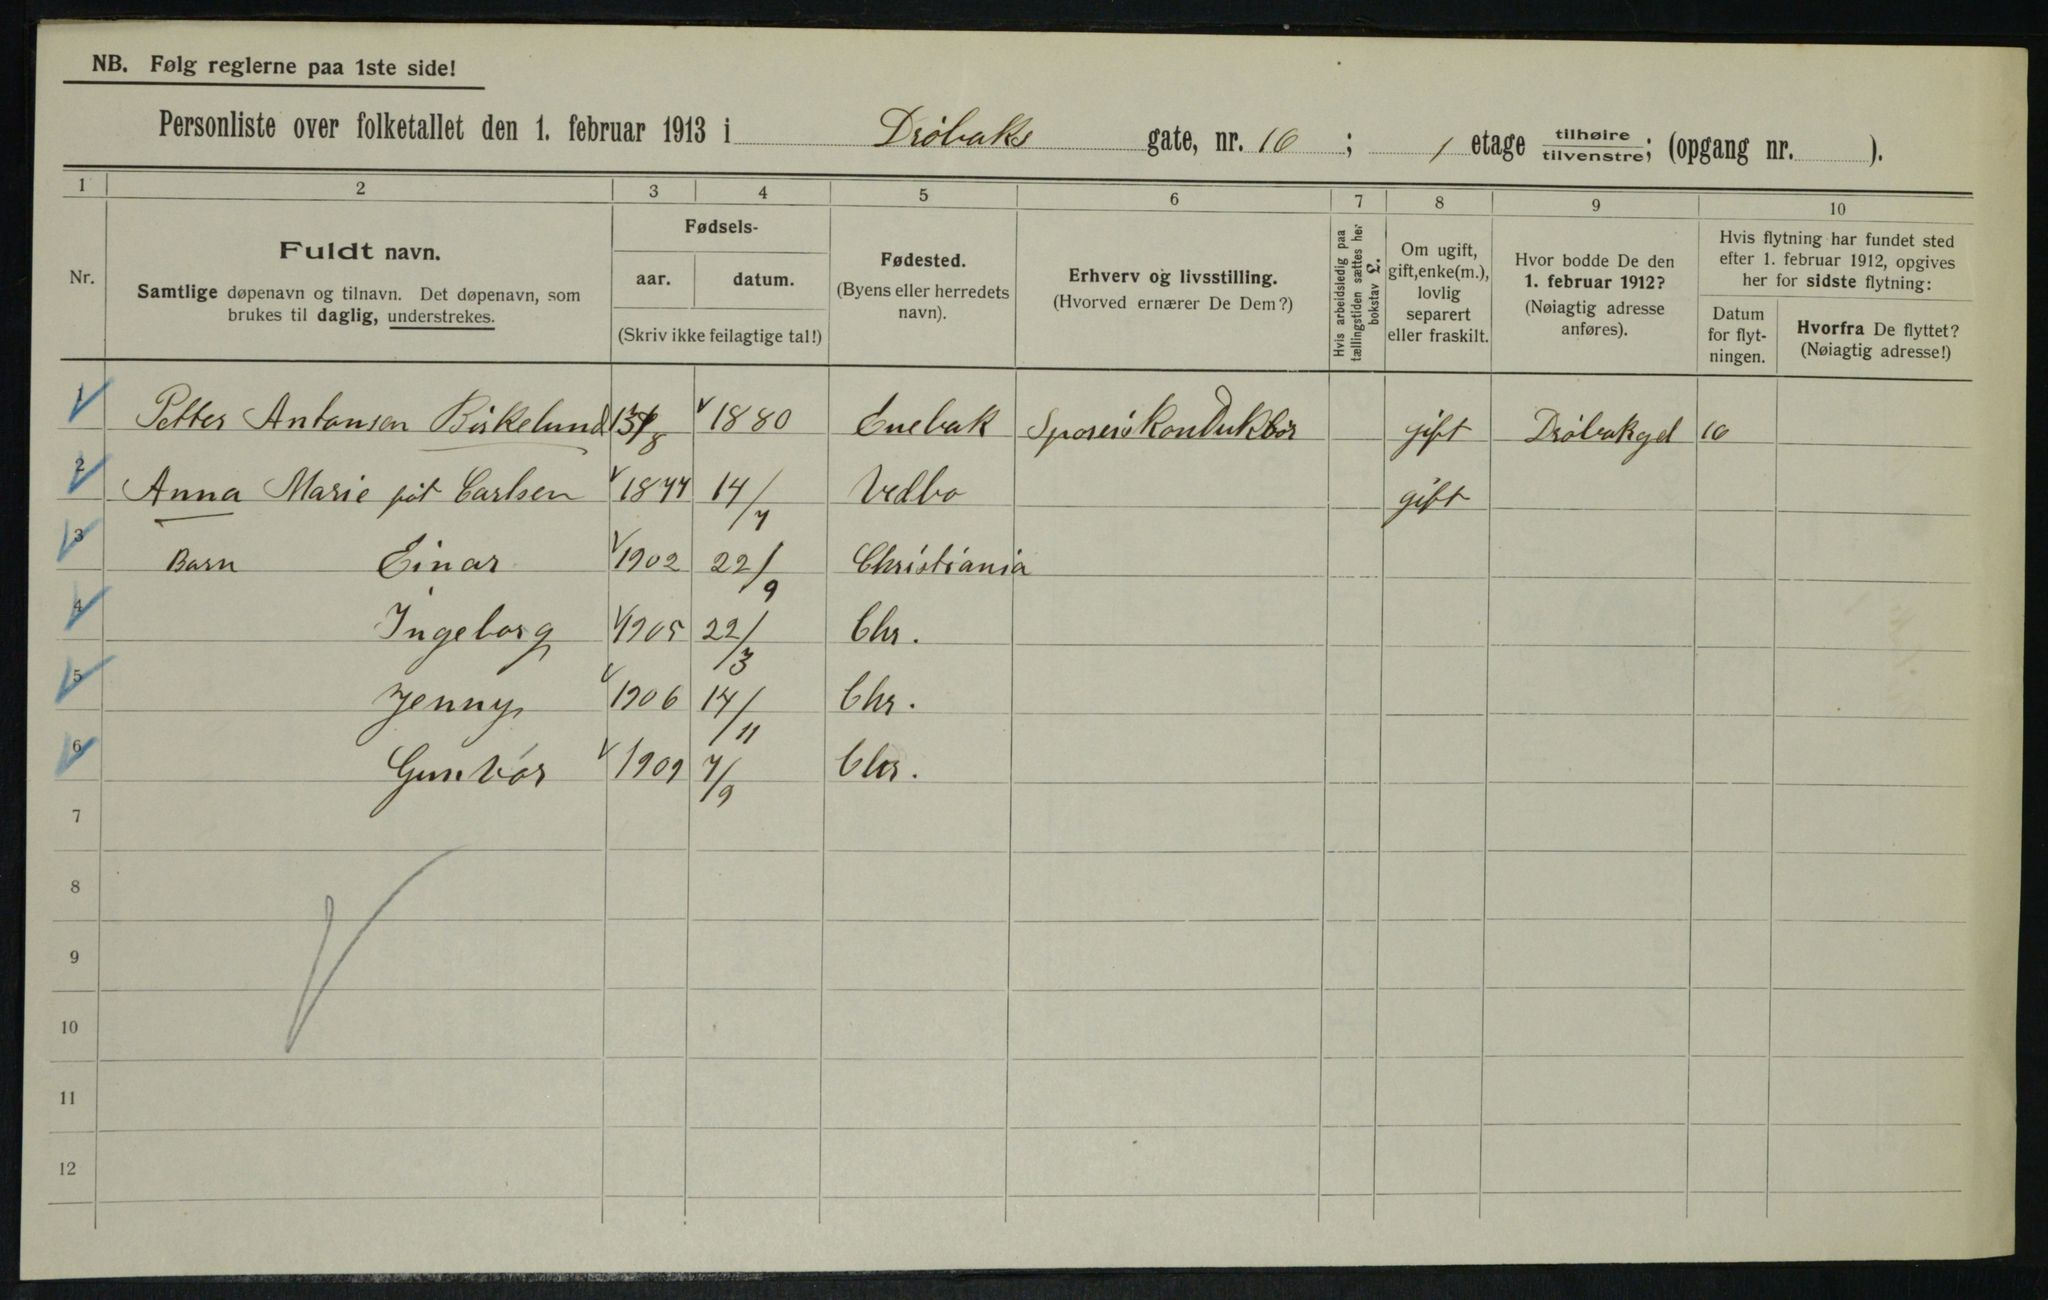 NB. Følg reglerne paa 1ste side!
Personliste over folketallet den 1. februar 1913 i Drøbaks gate, nr. 16 ; 1 etage tilhøire tilvenstre; (opgang nr. ).
1 2 3 4 5 6 7 8 9 10
Nr.
Fuldt navn.
Samtlige døpenavn og tilnavn. Det døpenavn, som
brukes til daglig, understrekes.
Fødsels-
aar. datum.
(Skriv ikke feilagtige tal!)
Fødested.
(Byens eller herredets
navn).
Erhverv og livsstilling.
(Hvorved ernærer De Dem?)
Hvis arbeidsledig paa
tællingstiden sættes her
bokstav L.
Om ugift,
gift, enke(m.),
lovlig
separert
eller fraskilt.
Hvor bodde De den
1. februar 1912?
(Nøiagtig adresse
anføres).
Hvis flytning har fundet sted
efter 1. februar 1912, opgives
her for sidste flytning:
Datum
for flyt-
ningen.
Hvorfra De flyttet?
(Nøiagtig adresse!)
1 Petter Antonsen Birkelund 1880 Enebak gift Drøbakgd 16
2 Anna Marie føt Carlsen 1877 14/7 Vedbo gift
3 Barn Einar 1902 22/9 Christiania
4 Ingeborg 1905 22/3 Chr.
5 Jenny 1906 14/11 Chr.
6 Gunvor 1909 7/9 Chr.
7
8
9
10
11
12